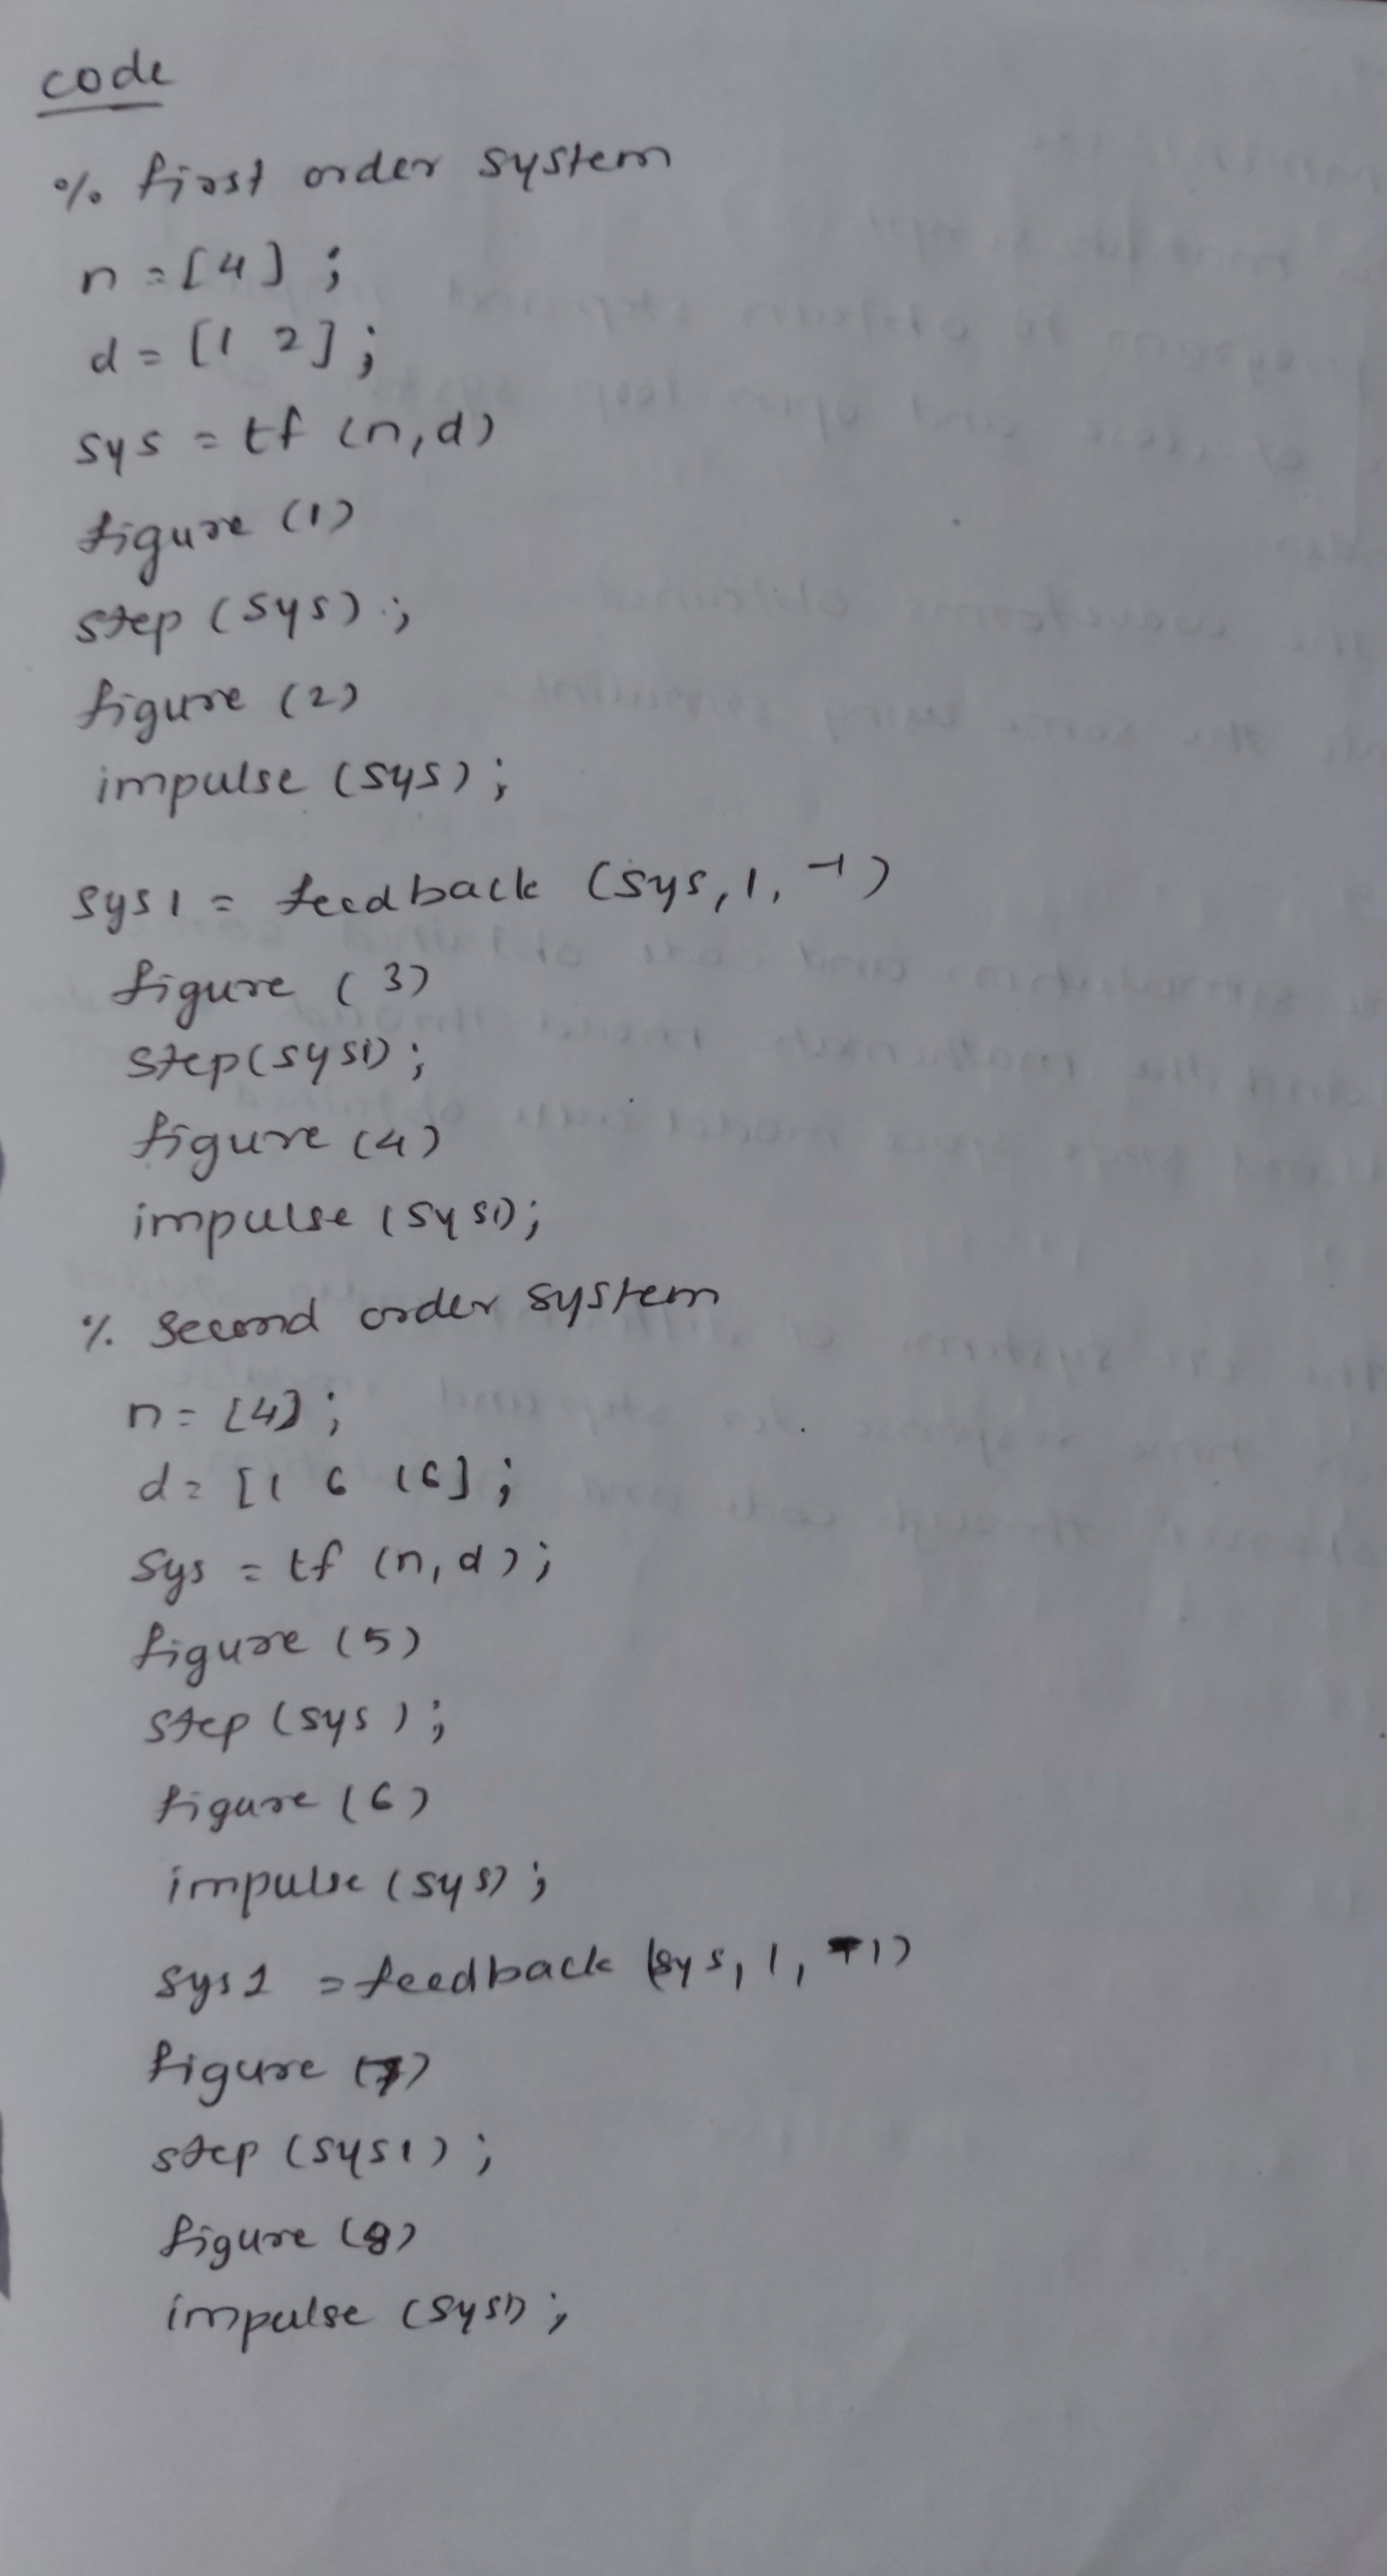 code
% first order system
n = [4] ;
d = [1 2] ;
sys = tf (n,d)
figure (1)
step (sys) ;
figure (2)
impulse (sys) ;
sys1 = feedback (sys, 1, -1)
figure (3)
step(sys1) ;
figure (4)
impulse (sys1);
% second order system
n = [4] ;
d = [1 6 16] ;
sys = tf (n, d) ;
figure (5)
step (sys) ;
figure (6)
impulse (sys) ;
sys1 = feedback (sys, 1, -1)
figure (7)
step (sys1) ;
figure (8)
impulse (sys1) ;